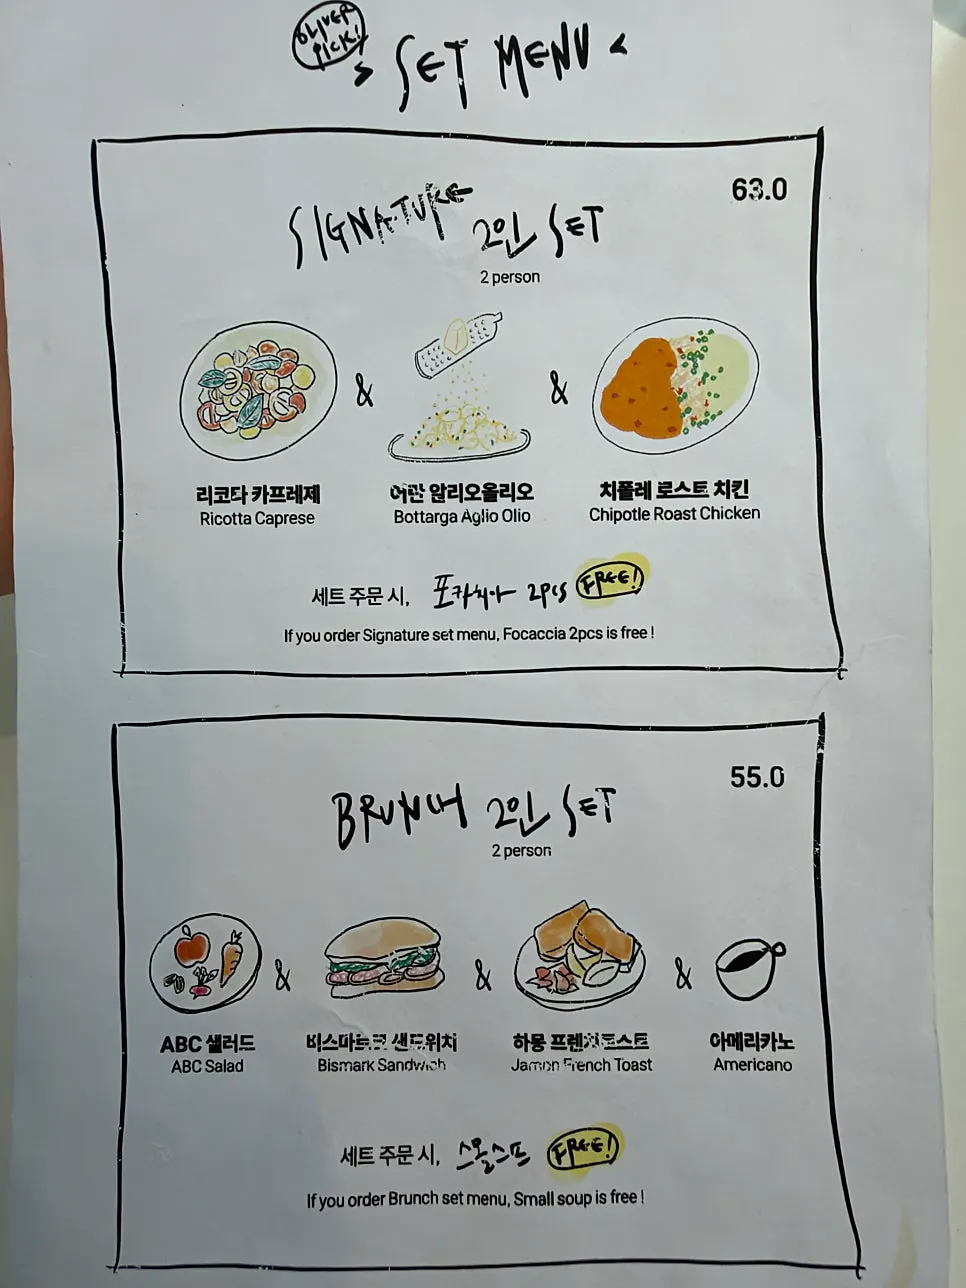 OLIVER PICK!
> SET MENU <
63.0
SIGNATURE 2인 SET
2 person
& &
리코타 카프레제
Ricotta Caprese
어란 알리오올리오
Bottarga Aglio Olio
치폴레 로스트 치킨
Chipotle Roast Chicken
세트 주문 시, 포카치아 2pcs FREE!
If you order Signature set menu, Focaccia 2pcs is free !
55.0
BRUNCH 2인 SET
2 person
& & &
ABC 샐러드
ABC Salad
비스마르크 샌드위치
Bismark Sandwich
하몽 프렌치토스트
Jamon French Toast
아메리카노
Americano
세트 주문 시, 스몰스프 FREE!
If you order Brunch set menu, Small soup is free !